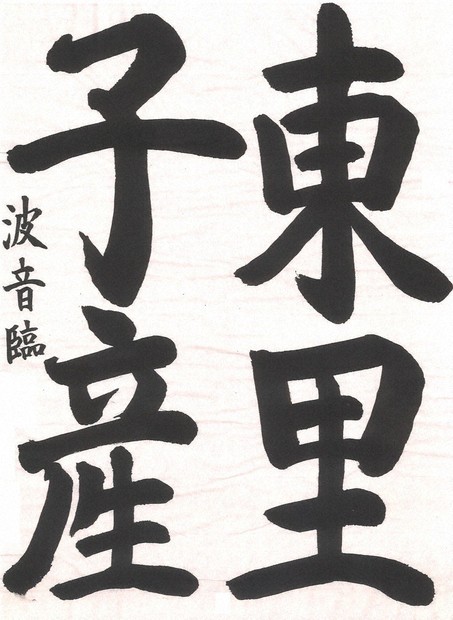 東里
子産
波音臨